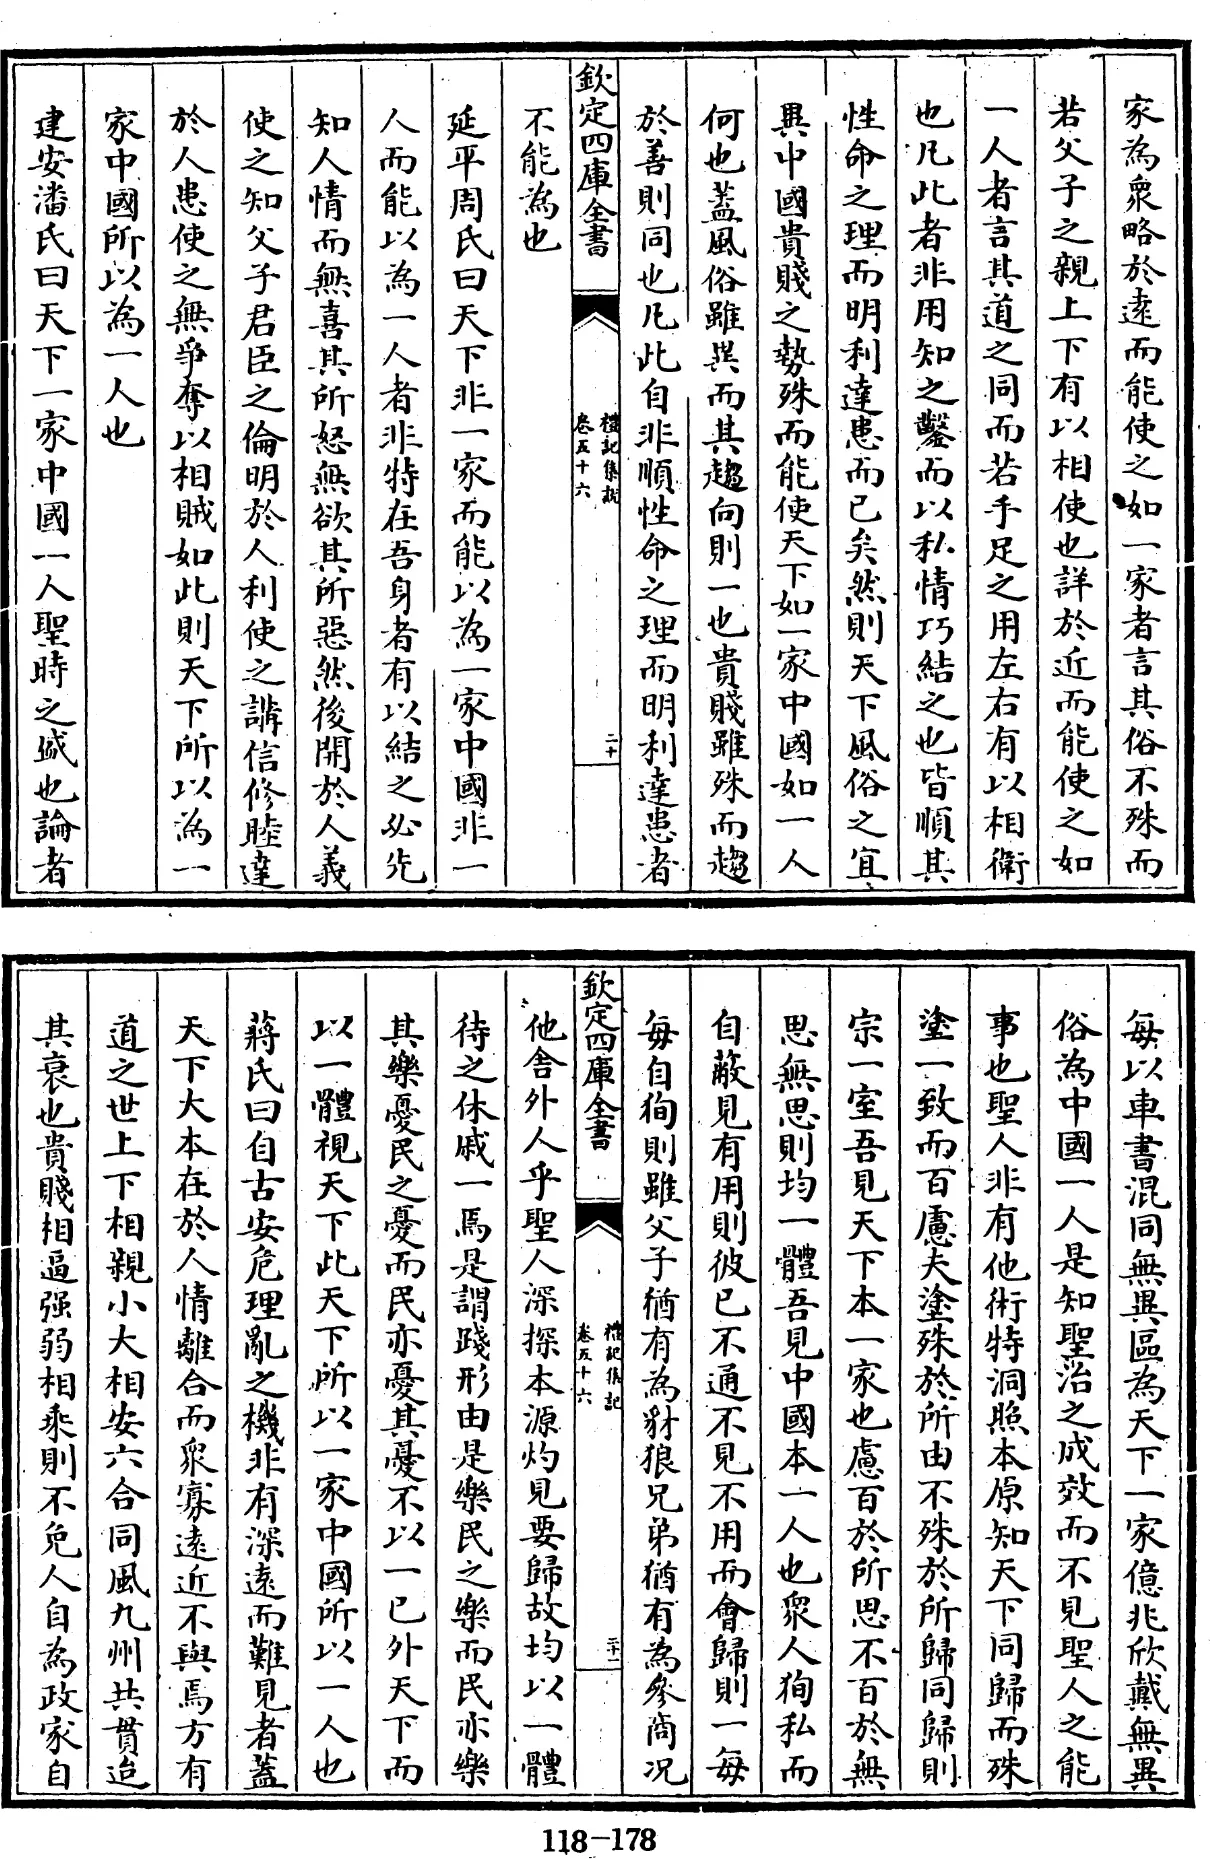 家為衆略於逺而能使之如一家者言其俗不殊而
若父子之親上下有以相使也詳於近而能使之如
一人者言其道之同而若手足之用左右有以相衛
也凡此者非用知之鑿而以私情巧結之也皆順其
性命之理而明利達患而已矣然則天下風俗之宜
異中國貴賤之勢殊而能使天下如一家中國如一人
何也蓋風俗雖異而其趨向則一也貴賤雖殊而趨
於善則同也凡此自非順性命之理而明利達患者
欽定四庫全書
禮記集說
卷五十六
二十
不能為也
延平周氏曰天下非一家而能以為一家中國非一
人而能以為一人者非特在吾身者有以結之必先
知人情而無喜其所怒無欲其所惡然後開於人義
使之知父子君臣之倫明於人利使之講信修睦達
於人患使之無爭奪以相賊如此則天下所以為一
家中國所以為一人也
建安潘氏曰天下一家中國一人聖時之盛也論者
每以車書混同無異區為天下一家億兆欣戴無異
俗為中國一人是知聖治之成效而不見聖人之能
事也聖人非有他術特洞照本原知天下同歸而殊
塗一致而百慮夫塗殊於所由不殊於所歸同歸則
宗一室吾見天下本一家也慮百於所思不百於無
思無思則均一體吾見中國本一人也衆人狥私而
自蔽見有用則彼已不通不見不用而會歸則一每
每自狥則雖父子猶有為豺狼兄弟猶有為參商况
欽定四庫全書
禮記集說
卷五十六
二十一
他舍外人乎聖人深探本源灼見要歸故均以一體
待之休戚一焉是謂踐形由是樂民之樂而民亦樂
其樂憂民之憂而民亦憂其憂不以一已外天下而
以一體視天下此天下所以一家中國所以一人也
蔣氏曰自古安危理亂之機非有深逺而難見者蓋
天下大本在於人情離合而衆寡逺近不與焉方有
道之世上下相親小大相安六合同風九州共貫迨
其衰也貴賤相逼强弱相乘則不免人自為政家自
118-178